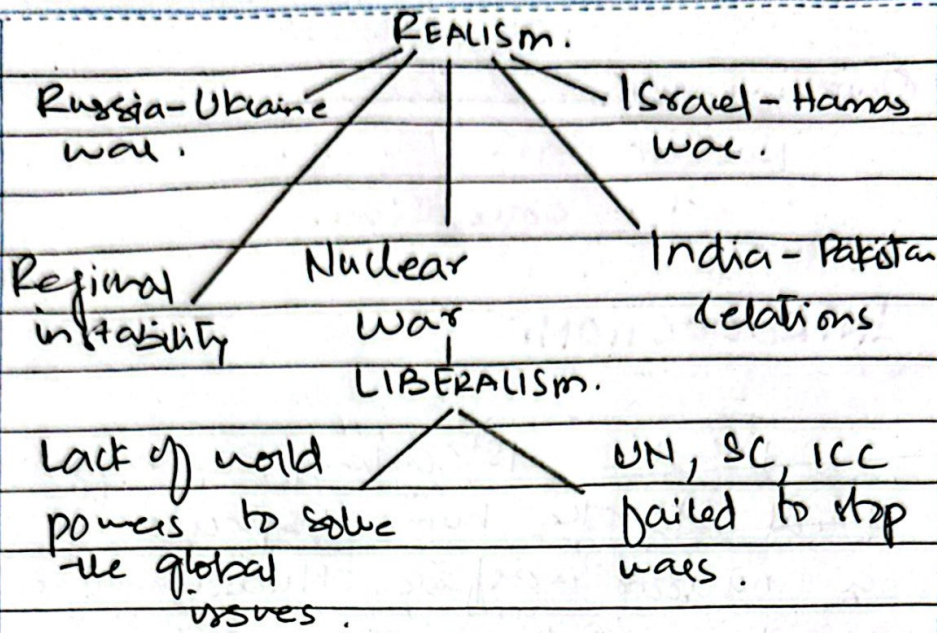 REALISM.
Russia-Ukraine
war.
Israel - Hamas
war.
Regional
instability
Nuclear
war
India - Pakistan
relations
LIBERALISM.
Lack of world
powers to solve
the global
issues.
UN, SC, ICC
failed to stop
wars.